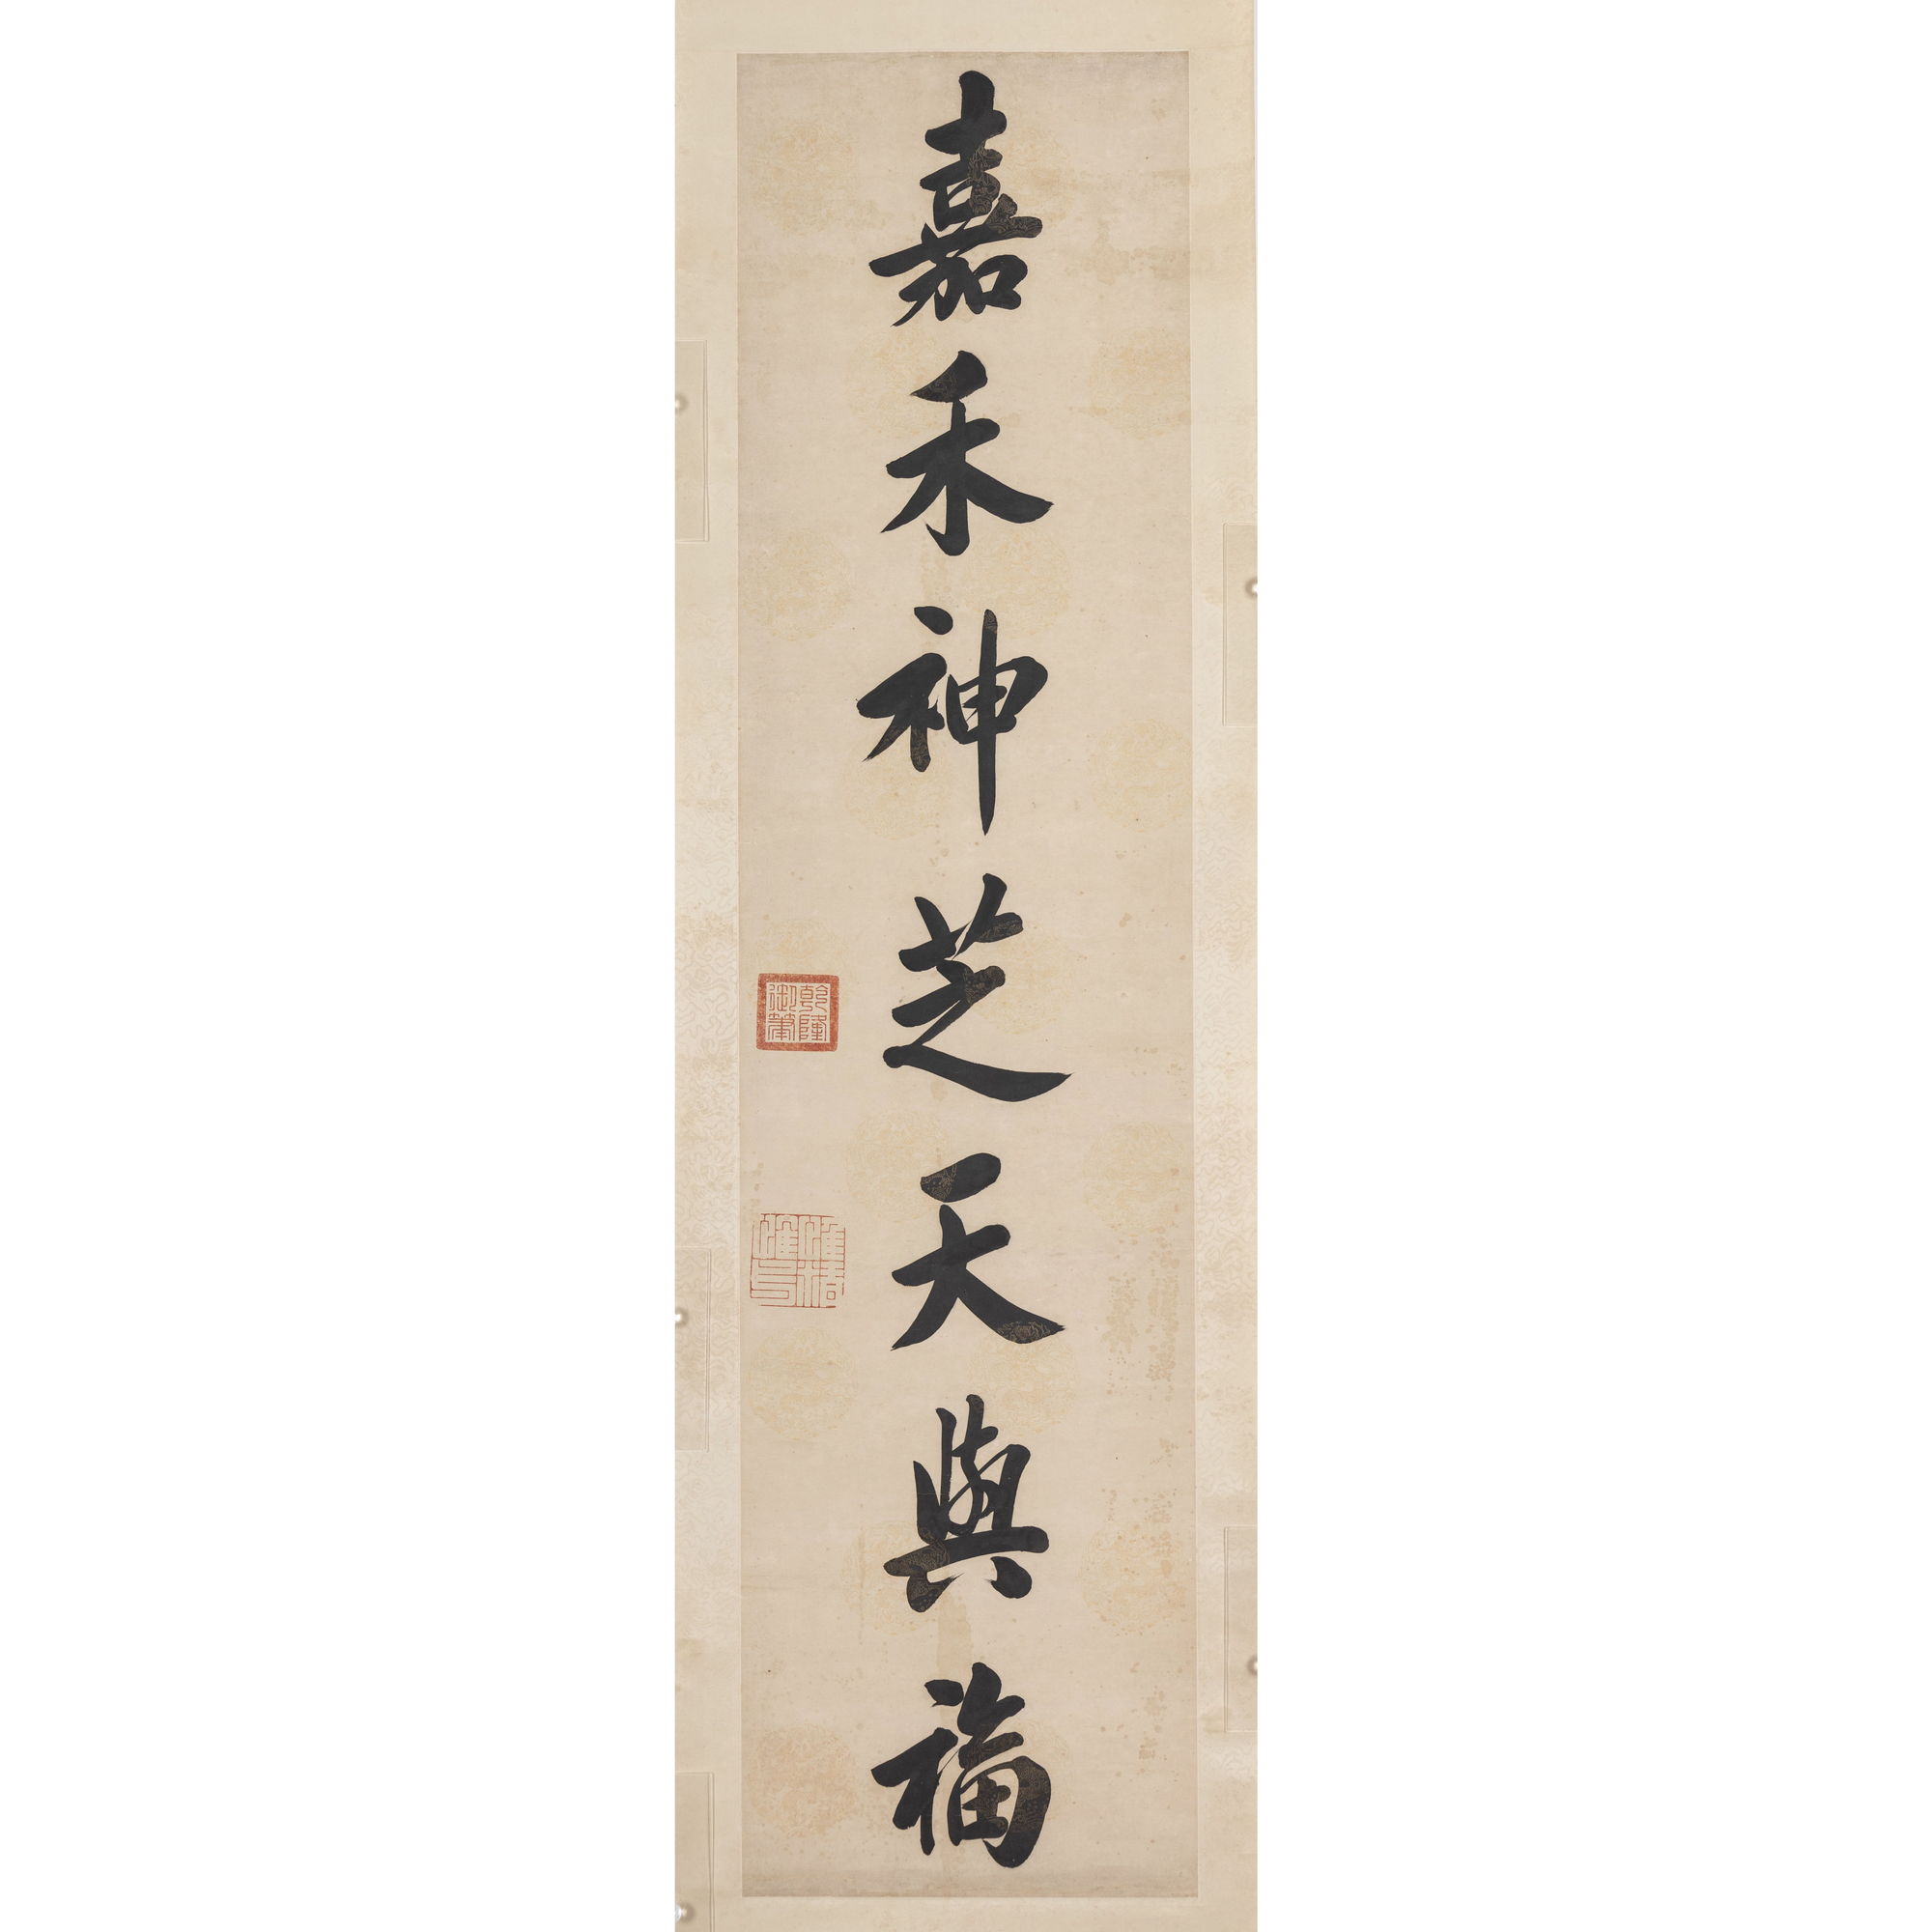 嘉禾神芝天與福
乾隆
御筆
惟精
惟一